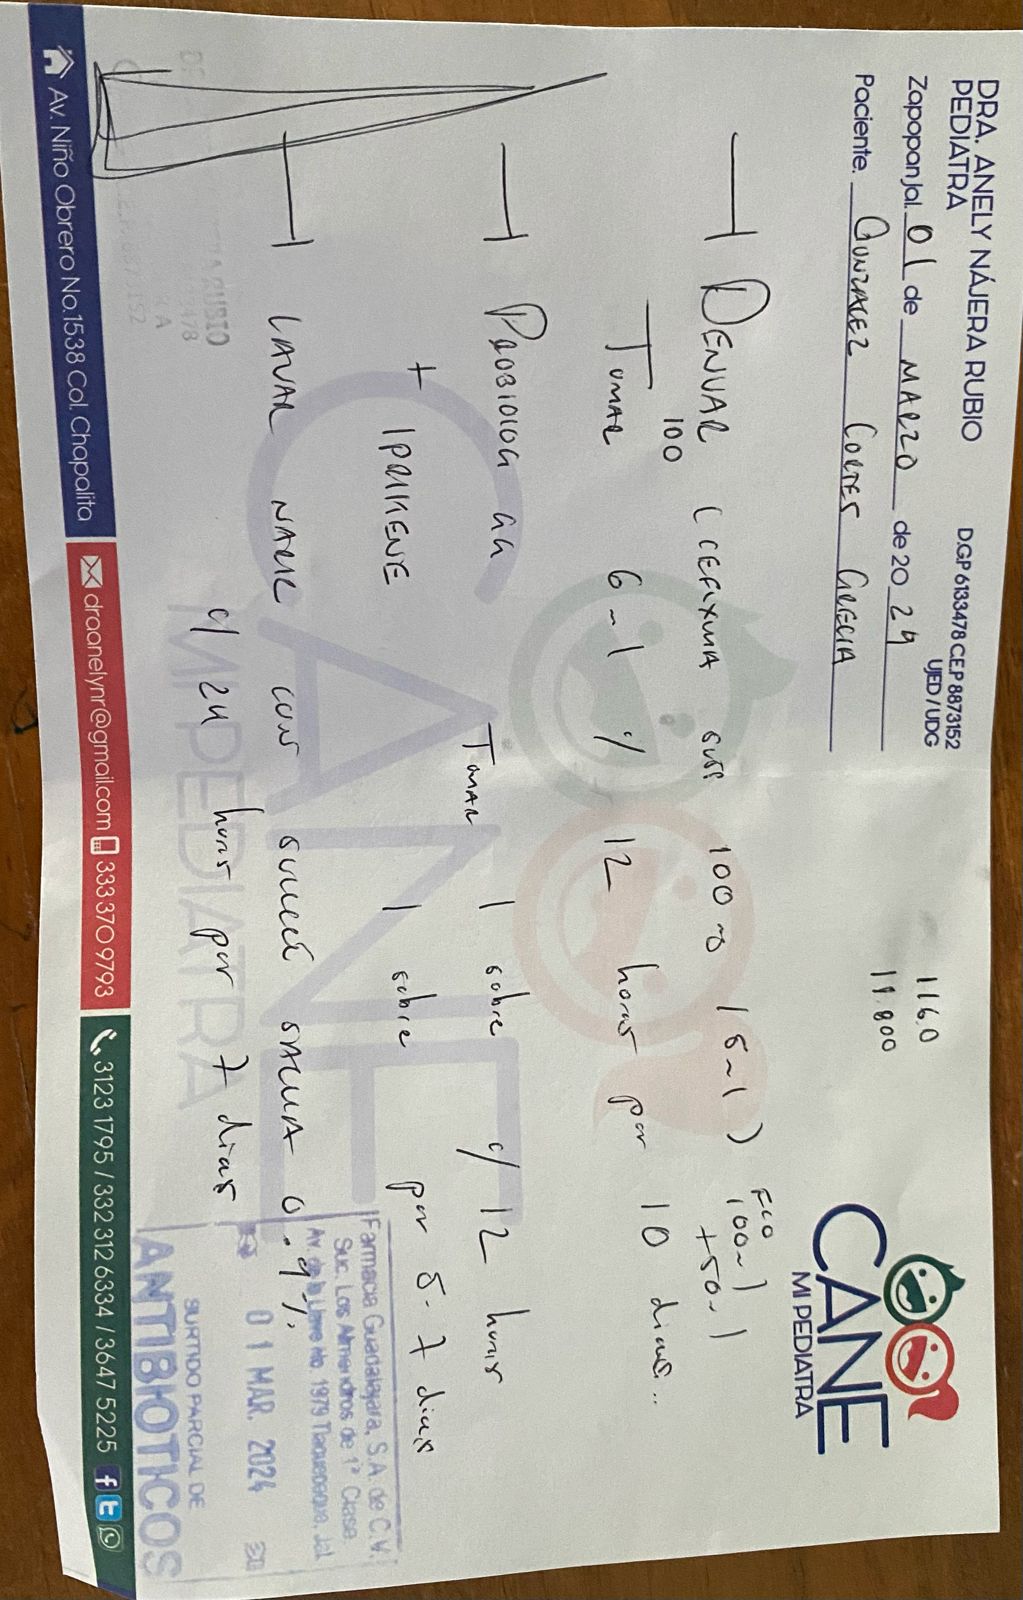 DRA. ANELY NÁJERA RUBIO
PEDIATRA
D.G.P 6133478 C.E.P 8873152
UJED / UDG
CANE
MI PEDIATRA
Zapopan jal. 01 de MARZO de 20 24
Paciente. GONZALEZ CORTES GRECIA
116.0
19.800
DENVAR (CEFIXIMA SUSP 100 mg / 5 ml)
FCO
100 ml
+ 50 ml
100
TOMAR 6 ml c/ 12 horas por 10 dias..
PROBIOLOG GG TOMAR 1 sobre c/ 12 horas
+ IPRIKENE 1 sobre por 5-7 dias
LAVAR NARIZ CON SALINA 0.9%
c/ 24 horas por 7 dias
Farmacia Guadalajara, S.A. de C.V.
Suc. Los Almendros de 1ª Clase
Av. de la No. 1979 Tlaquepaque, Jal
01 MAR. 2024
SURTIDO PARCIAL DE
ANTIBIOTICOS
CANE
MI PEDIATRA
Av. Niño Obrero No.1538 Col. Chapalita draanelynr@gmail.com 333 370 9793 3123 1795 / 332 312 6334 / 3647 5225